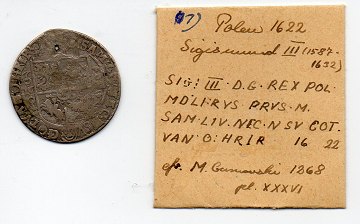 87) Polen 1622
Sigismund III (1587-
1632)
SIG: III · D.G. REX POL
MD'LI·RVS PRVS·M.
SAM·LIV·NEC·N SV GOT.
VAN O: HRIR 16 22
cfr. M. Gumowski 1268
pl. XXXVI